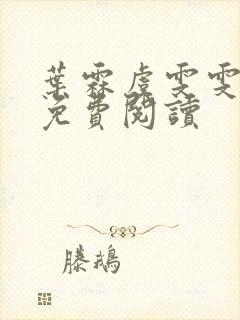 葉霖虞雯雯
免費閱讀
滕鵝